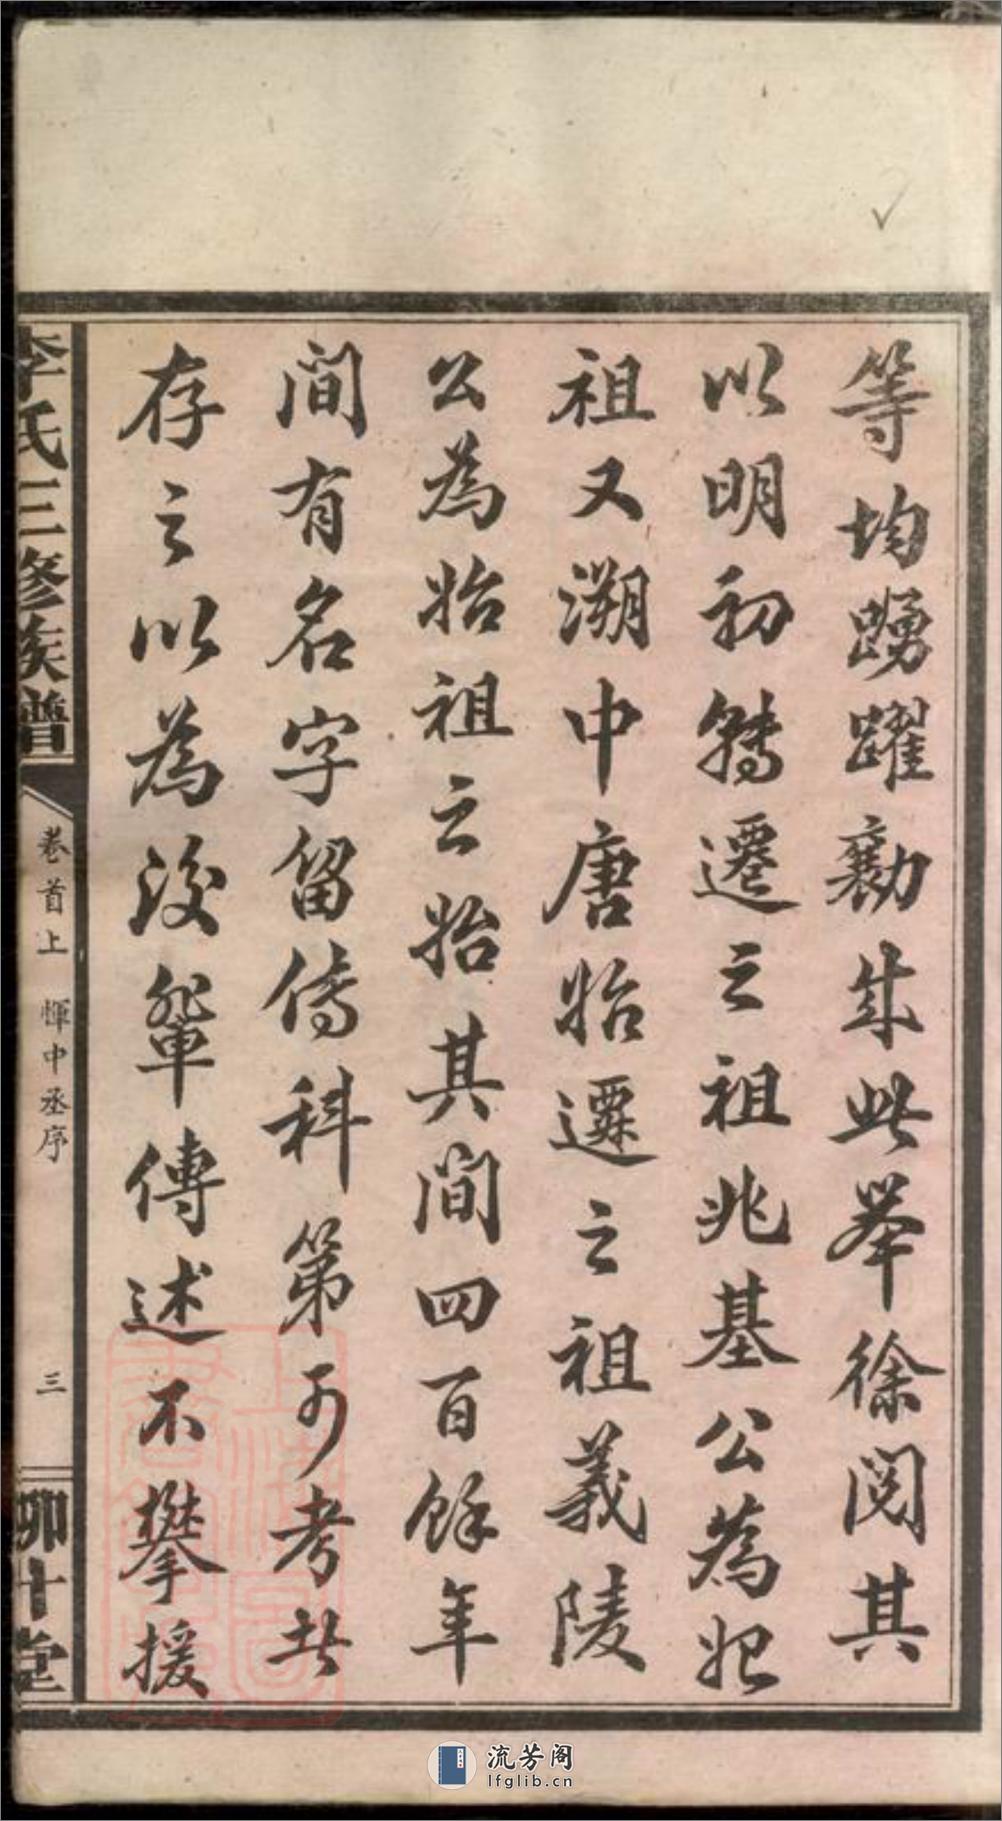 等均踴躍勷成此舉徐閱其
以明初轉遷之祖兆基公為始
祖又溯中唐始遷之祖義陵
公為始祖之始其間四百餘年
間有名字留傳科第可考者
存之以為後輩傳述不攀援
李氏三修族譜
卷首上 惲中丞序
三
卯十堂
流芳阁
lfglib.cn